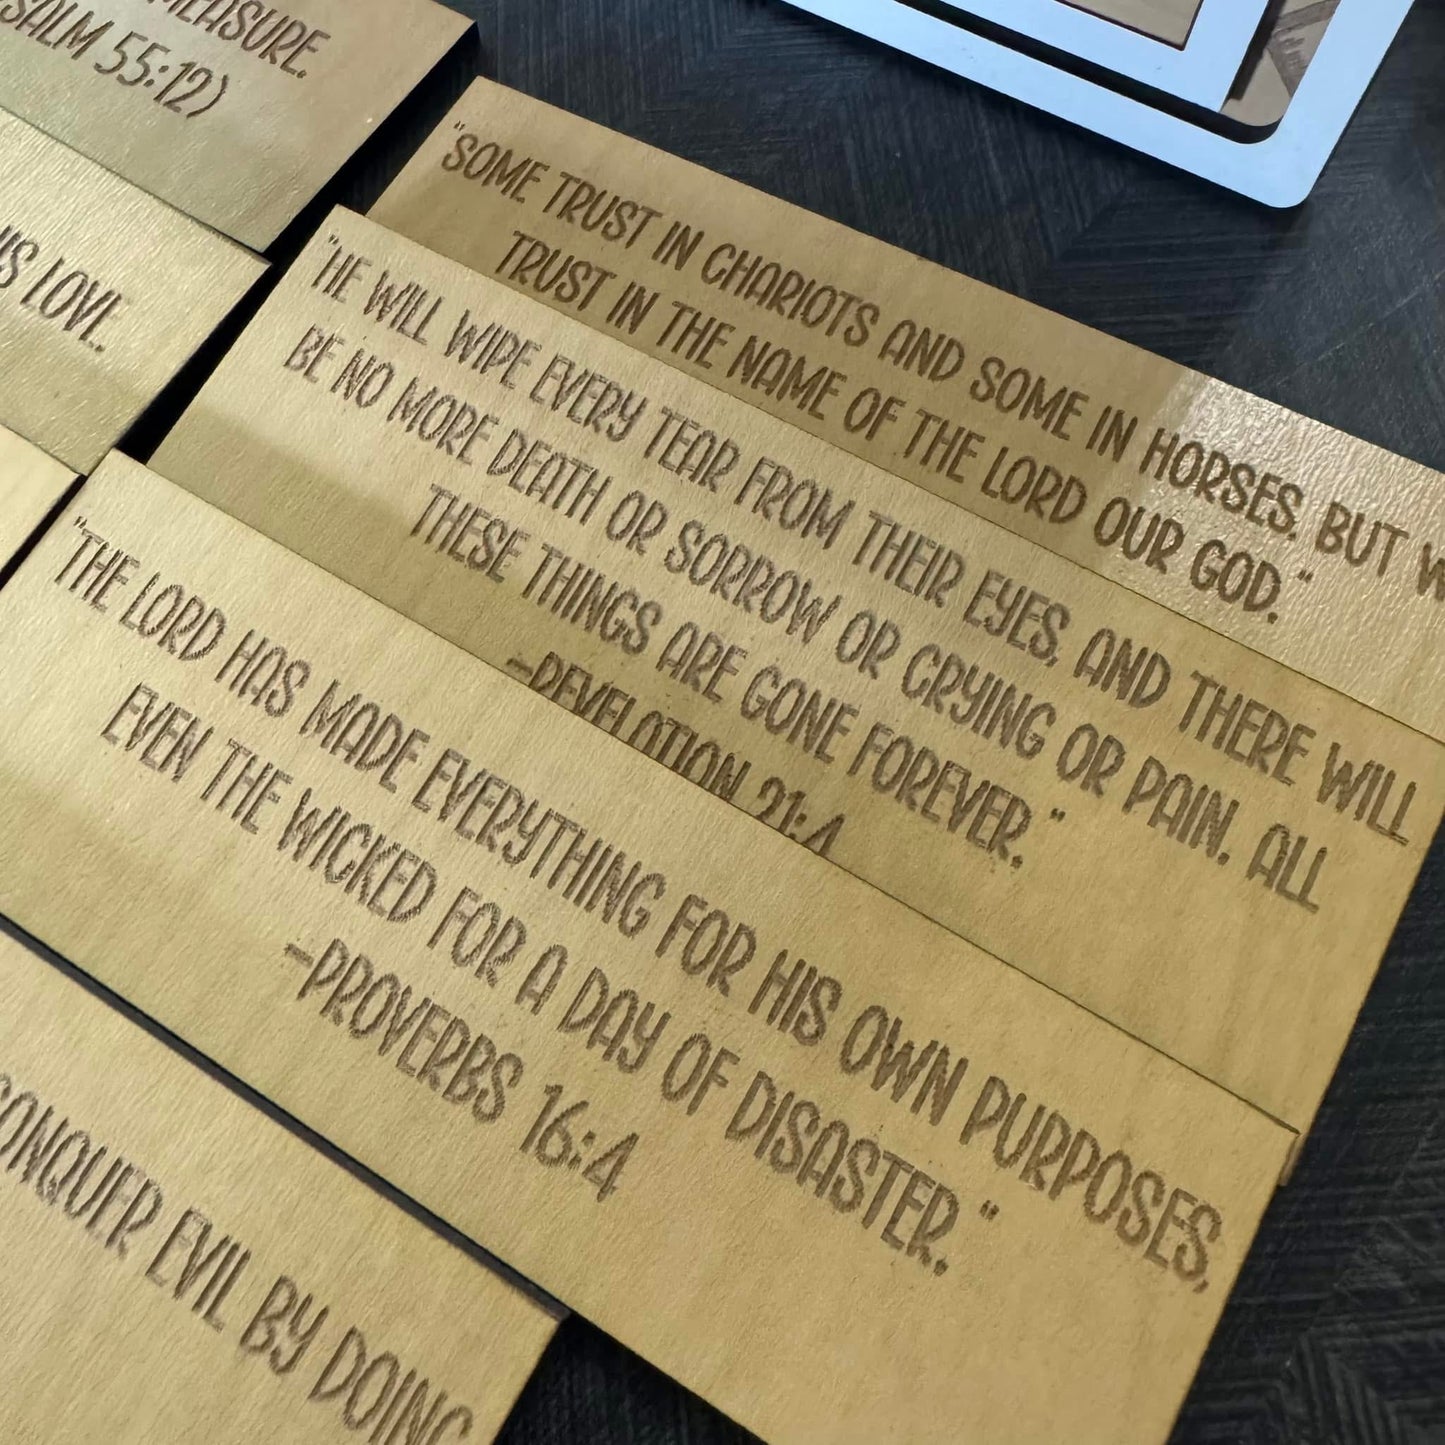 MEASURE.
PSALM 55:12)
"SOME TRUST IN CHARIOTS AND SOME IN HORSES, BUT
TRUST IN THE NAME OF THE LORD OUR GOD."
LOVE.
"HE WILL WIPE EVERY TEAR FROM THEIR EYES, AND THERE WILL
BE NO MORE DEATH OR SORROW OR CRYING OR PAIN. ALL
THESE THINGS ARE GONE FOREVER."
–REVELATION 21:4
"THE LORD HAS MADE EVERYTHING FOR HIS OWN PURPOSES,
EVEN THE WICKED FOR A DAY OF DISASTER."
–PROVERBS 16:4
CONQUER EVIL BY DOING